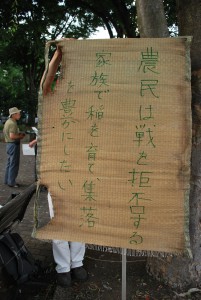 農民は戦を拒否する
家族で稲を育て、集落
を豊かにしたい